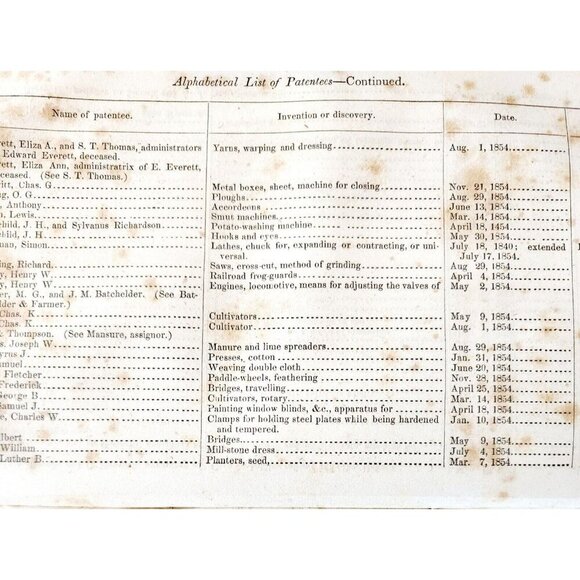 Alphabetical List of Patentees—Continued.
Name of patentee. Invention or discovery. Date.
rett, Eliza A., and S. T. Thomas, administrators Yarns, warping and dressing Aug. 1, 1854
Edward Everett, deceased.
rett, Eliza Ann, administratrix of E. Everett,
ceased. (See S. T. Thomas.)
itt, Chas. G Metal boxes, sheet, machine for closing Nov. 21, 1854
g, O. G Ploughs Aug. 29, 1854
Anthony Accordeons June 13, 1854
n, Lewis Smut machines Mar. 14, 1854
child, J. H., and Sylvanus Richardson Potato-washing machine April 18, 1454
child, J. H Hooks and eyes May 30, 1854
man, Simon Lathes, chuck for, expanding or contracting, or uni- July 18, 1840; extended
versal. July 17, 1854
ing, Richard Saws, cross-cut, method of grinding Aug. 29, 1854
y, Henry W Railroad frog-guards April 4, 1854
y, Henry W Engines, locomotive, means for adjusting the valves of May 2, 1854
er, M. G., and J. M. Batchelder. (See Bat-
elder & Farmer.)
Chas. K Cultivators May 9, 1854
Chas. K Cultivator Aug. 1, 1854
& Thompson. (See Mansure, assignor.)
s, Joseph W Manure and lime spreaders Aug. 29, 1854
yrus J Presses, cotton Jan. 31, 1854
muel Weaving double cloth June 20, 1854
Fletcher Paddle-wheels, feathering Nov. 28, 1854
Frederick Bridges, travelling April 25, 1854
George B Cultivators, rotary Mar. 14, 1854
Samuel J Painting window blinds, &c., apparatus for April 18, 1854
e, Charles W Clamps for holding steel plates while being hardened Jan. 10, 1854
and tempered.
lbert Bridges May 9, 1854
William Mill-stone dress July 4, 1854
Luther B Planters, seed, Mar. 7, 1854